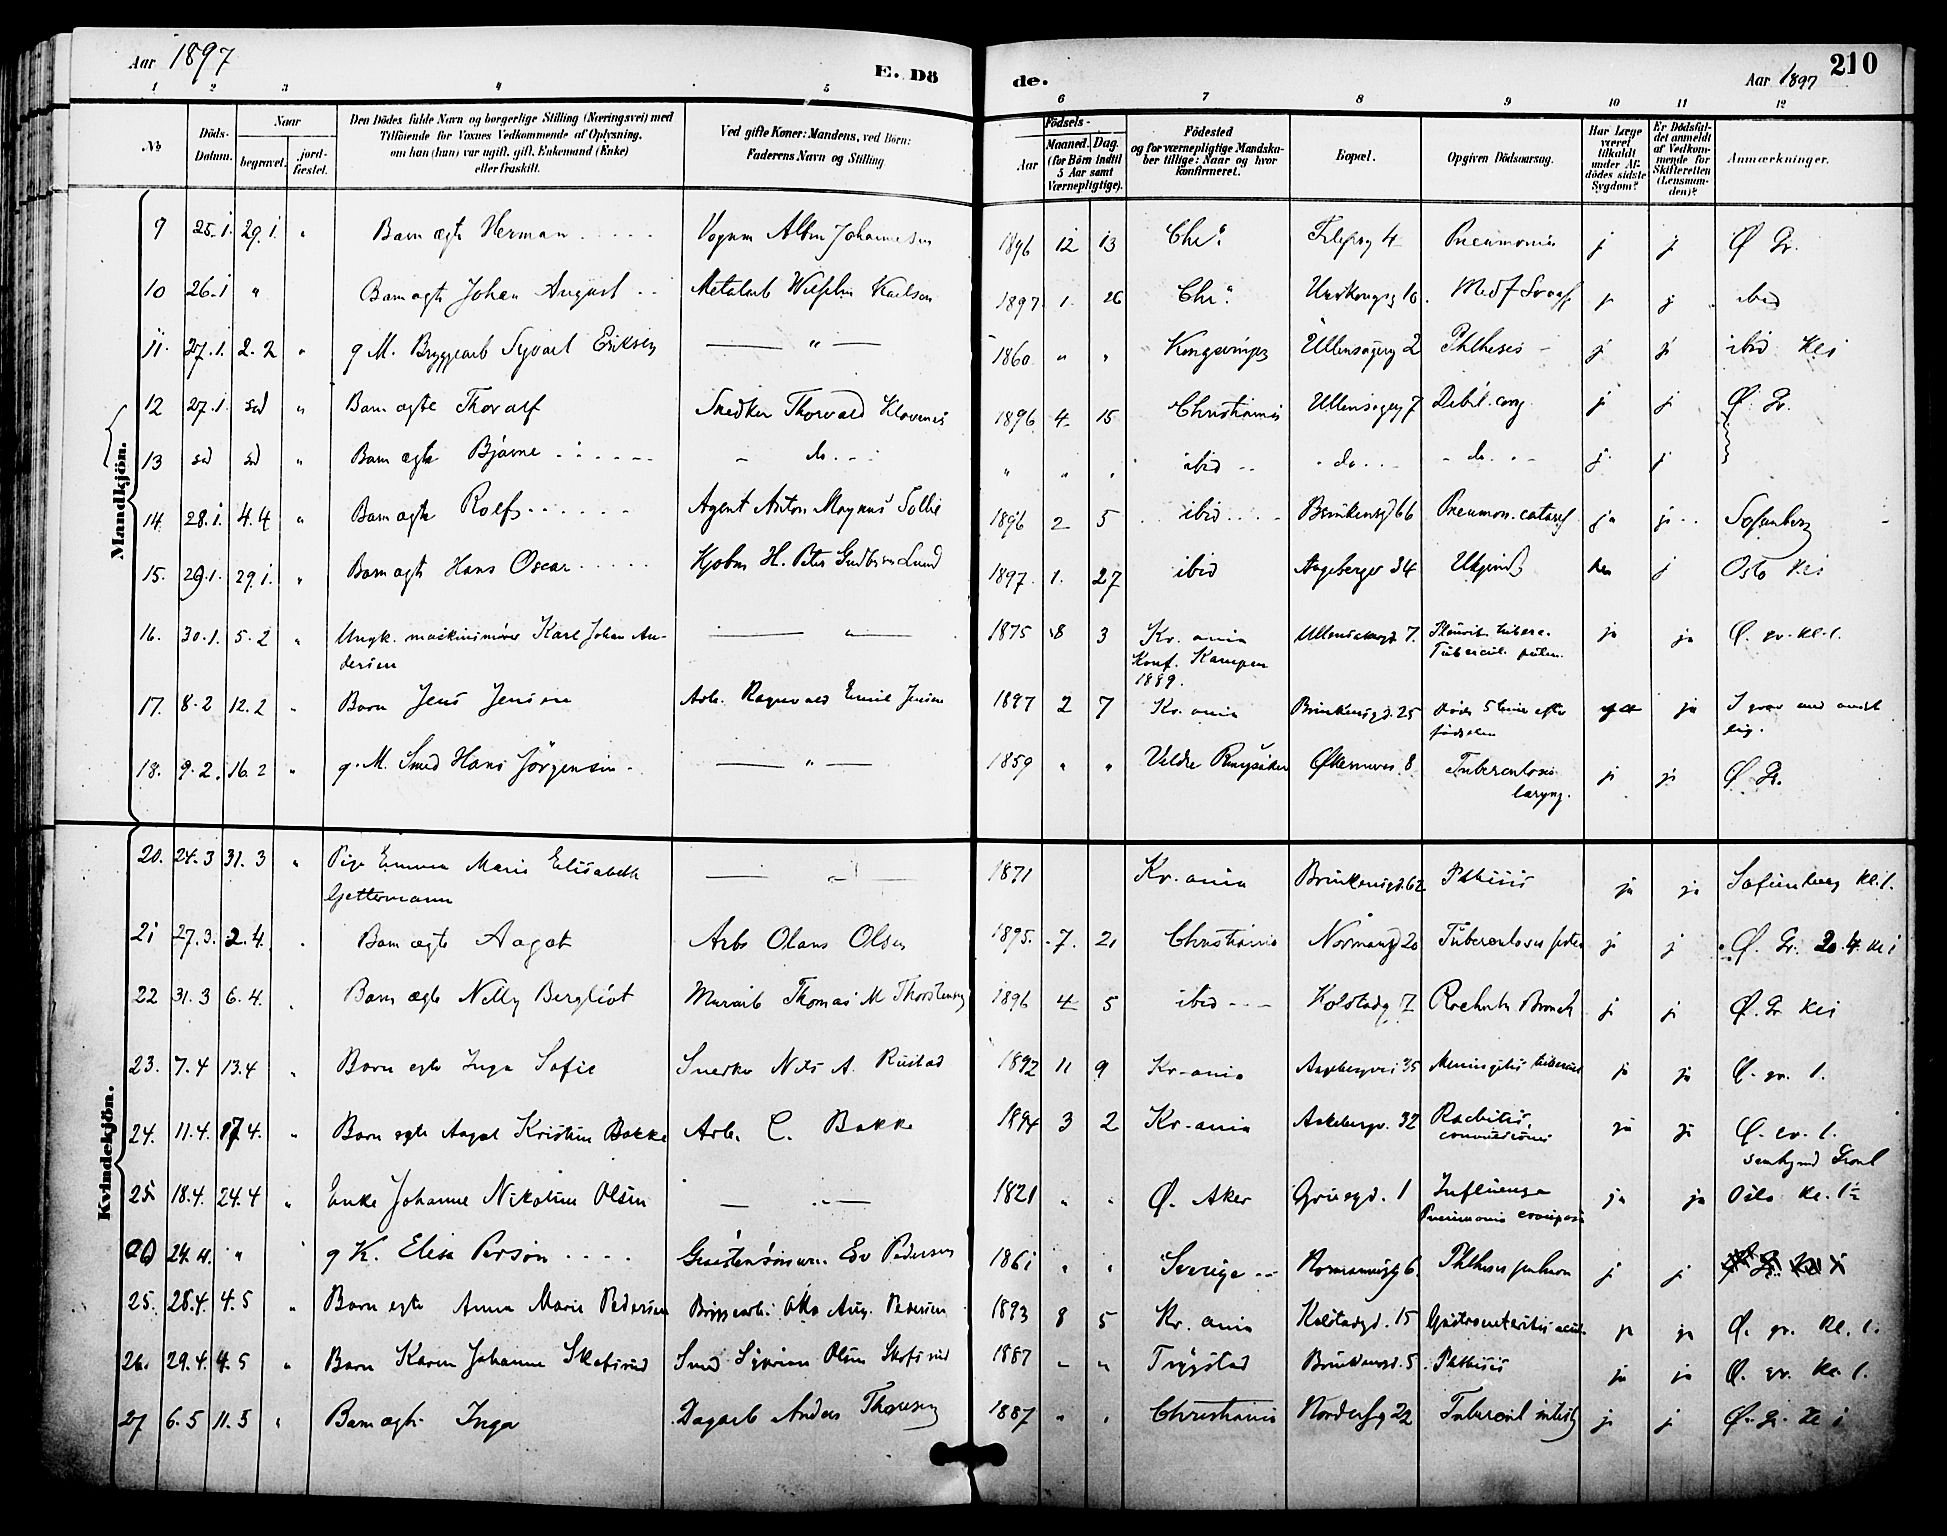 Aar 1897
E. Dö
de.
Aar 1897
210
1 2 3 4 5 6 7 8 9 10 11 12
No
Döds-Datum.
Naar
begravet.
jord-fæstet.
Den Dödes fulde Navn og borgerlige Stilling (Næringsvei) med
Tilföiende för Voxnes Vedkommende af Oplysning,
om han (hun) var ugift, gift, Enkemand (Enke)
eller fraskilt.
Ved gifte Koner: Mandens, ved Börn:
Faderens Navn og Stilling
Födsels-
Aar
Maaned. Dag.
(for Börn indtil
5 Aar samt
Værnepligtige).
Födested
og for værnepligtige Mandska-
ber tillige: Naar og hvor
konfirmeret.
Bopæl.
Opgiven Dödsaarsag.
Har Læge
været
tilkaldt
under Af-
dödes sidste
Sygdom?
Er Dödsfal-
det anmeldt
af Vedkom-
mende for
Skifteretten
(Lensman-
den)?
Anmærkninger.
Mandkjön.
9 25.1. 29.1. " Barn ægte Herman Vognm Johannesen 1896 12 13 Chr.a 4 Pneumonia j j Ø Gr.
10 26.1 " Barn ægte Johan August Metalarb Karlson 1897 1. 26 Chr.a 10 j j ibid
11. 27.1. 2.2 " g M. Bryggearb Syvart Eriksen — " — 1860 " " Kongsvinger Ullensagerg 2 Phthisis j j ibid Kl i
12 27.1. sd " Barn ægte Thoralf Snedker Thorvald Klovenes 1896 4 15 Christiania Ullensagerg 7 Debil. cong j j Ø. Gr.
13 sd sd " Barn ægte Bjarne - do. - " " " ibid - do. - - do. - j j
14. 28.1. 4.4 " Barn ægte Rolf Agent Anton Magnus Sollie 1896 2 5 ibid Brinkensgd 66 Pneumon. catarrh ja j Sofienberg
15. 29.1. 29.1. " Barn ægte Hans Oscar Kjøbm H. Peter Lund 1897 1. 27 ibid Aagebergv 34 j Oslo Kl i
16. 30.1. 5.2 " Ungk. maskinismører Karl Johan An-
dersen — " — 1875 8 3 Kr.ania
Konf. Kampen
1889. Ullensakergd. 7. Pleurit. tuberc.
Tubercul. pulm. ja ja Ø. gr. kl. 1.
17. 8.2 12.2 " Barn Jens Jensen Arb. Ragnvald Emil Jensen 1897 2 7 Kr.ania Brinkensgd. 25 døde 5 timer efter
fødselen ja I grav med andet
lig.
18. 9.2. 16.2 " g. M. Smed Hans Jörgensen — " — 1859 " " Veldre Ringsaker Økernveien 8 Tuberculosis
laryng. j j Ø Gr.
Kvindekjön.
20. 24.3 31.3 " Pige Emma Marie Elisabeth
Gettermann — " — 1871 Kr.ania Brinkensgd. 62 Phthisis ja ja Sofienberg Kl. 1.
21 27.3. 2.4. " Barn ægte Aagot Arb Olaus Olsen 1895. 7. 21 Christiania Normansgd 20 Tuberculosis j j Ø. Gr. 20.4. Kl i
22 31.3 6.4. " Barn ægte Nelly Bergliot Murarb Thomas M Thorstensen 1896 4 5 ibid Kolstadg 7 j j Ø. Gr Kl i
23. 7.4 13.4 " Barn egte Inga Sofie Snedker Nils A. Rustad 1892 11 9 Kr.ania Aagebergvei 35 Meningitis tuberculos ja ja Ø. gr. 1.
24. 11.4. 17.4. " Barn egte Aagot Kristine Bakke Arb. C. Bakke 1894 3 2 Kr.ania Aakebergv. 32 Rachitis,
convulsiones ja ja Ø. gr. 1.
25 18.4. 24.4 " Enke Johanne Nikoline Olsen — " — 1821 " " Ø. Aker 1 Influenza
Pneumonia crouposa ja ja Oslo kl. 1
26 24.4. " g K. Elisa Person Ed Pedersen 1861 " " Sverige Normannsg 6. Phthisis pulmon j j
25. 28.4. 4.5 " Barn egte Anna Marie Pedersen Bryggearb. Otto Aug. Pedersen 1893 8 5 Kr.ania Kolstadgd. 15 Gastroenteritis acuta ja ja Ø. gr. kl. 1.
26. 29.4. 4.5 " Barn Karen Johanne Skofsrud Smed Syverin Olsen Skofsrud 1887 " " Trøgstad Brinkensgd. 5 Phthisis ja ja Ø. gr. kl. 1.
27 6.5 11.5 " Barn ægte Inga Dagarb Anders Thoresen 1887 " " Christiania 22 Tubercul intesti j j Ø. Gr. Kl i